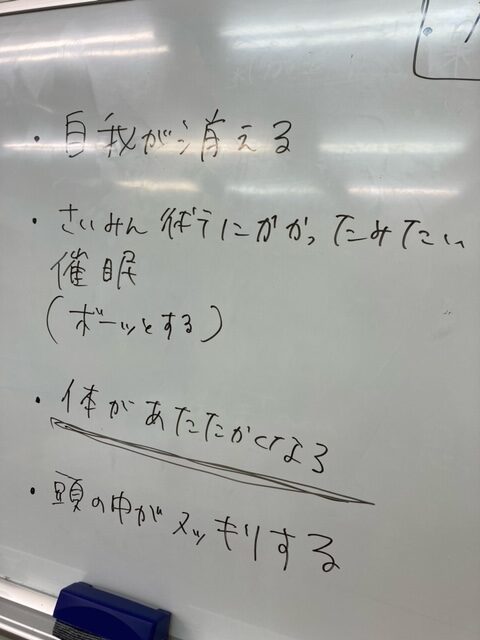 ・自我が消える
・さいみん術にかかったみたい
催眠
(ボーッとする)
・体があたたかくなる
・頭の中がスッキリする